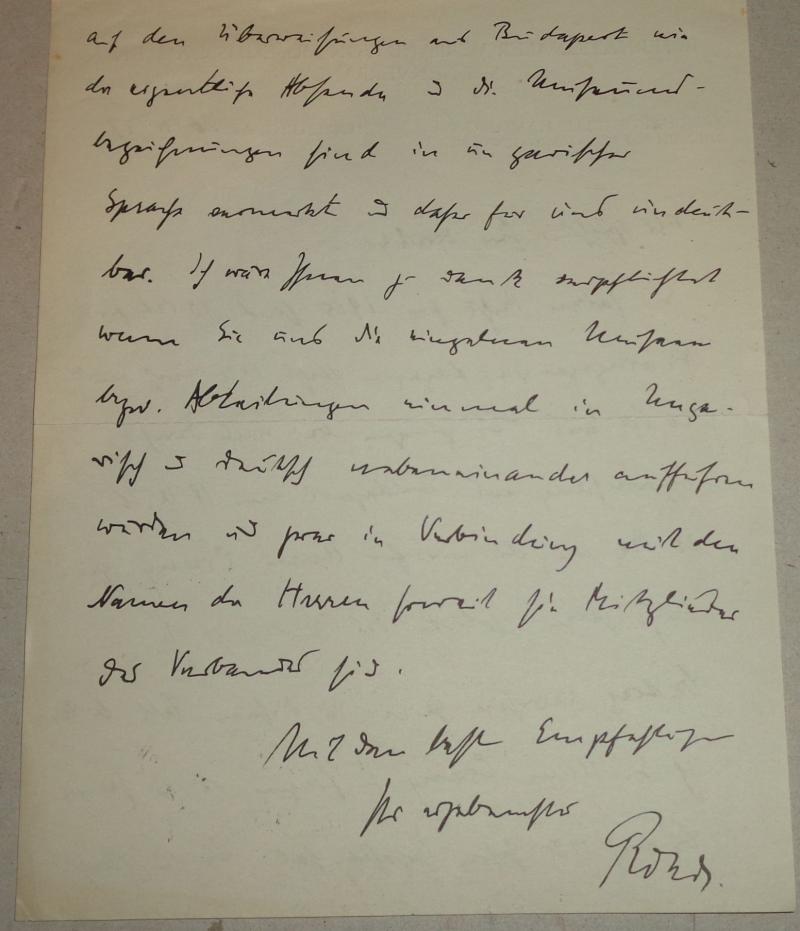 auf den Überweisungen aus Budapest nie
der eigentliche Absender u die Museums-
bezeichnungen sind in ungarischer
Sprache vermerkt u daher für uns undeut-
bar. Ich wäre Ihnen zu Dank verpflichtet
wenn Sie uns die einzelnen Museen
bezw. Abteilungen einmal in Unga-
risch u deutsch nebeneinander aufführen
würden und zwar in Verbindung mit den
Namen der Herren soweit sie Mitglieder
des Verbandes sind.
Mit den besten Empfehlungen
Ihr ergebenster